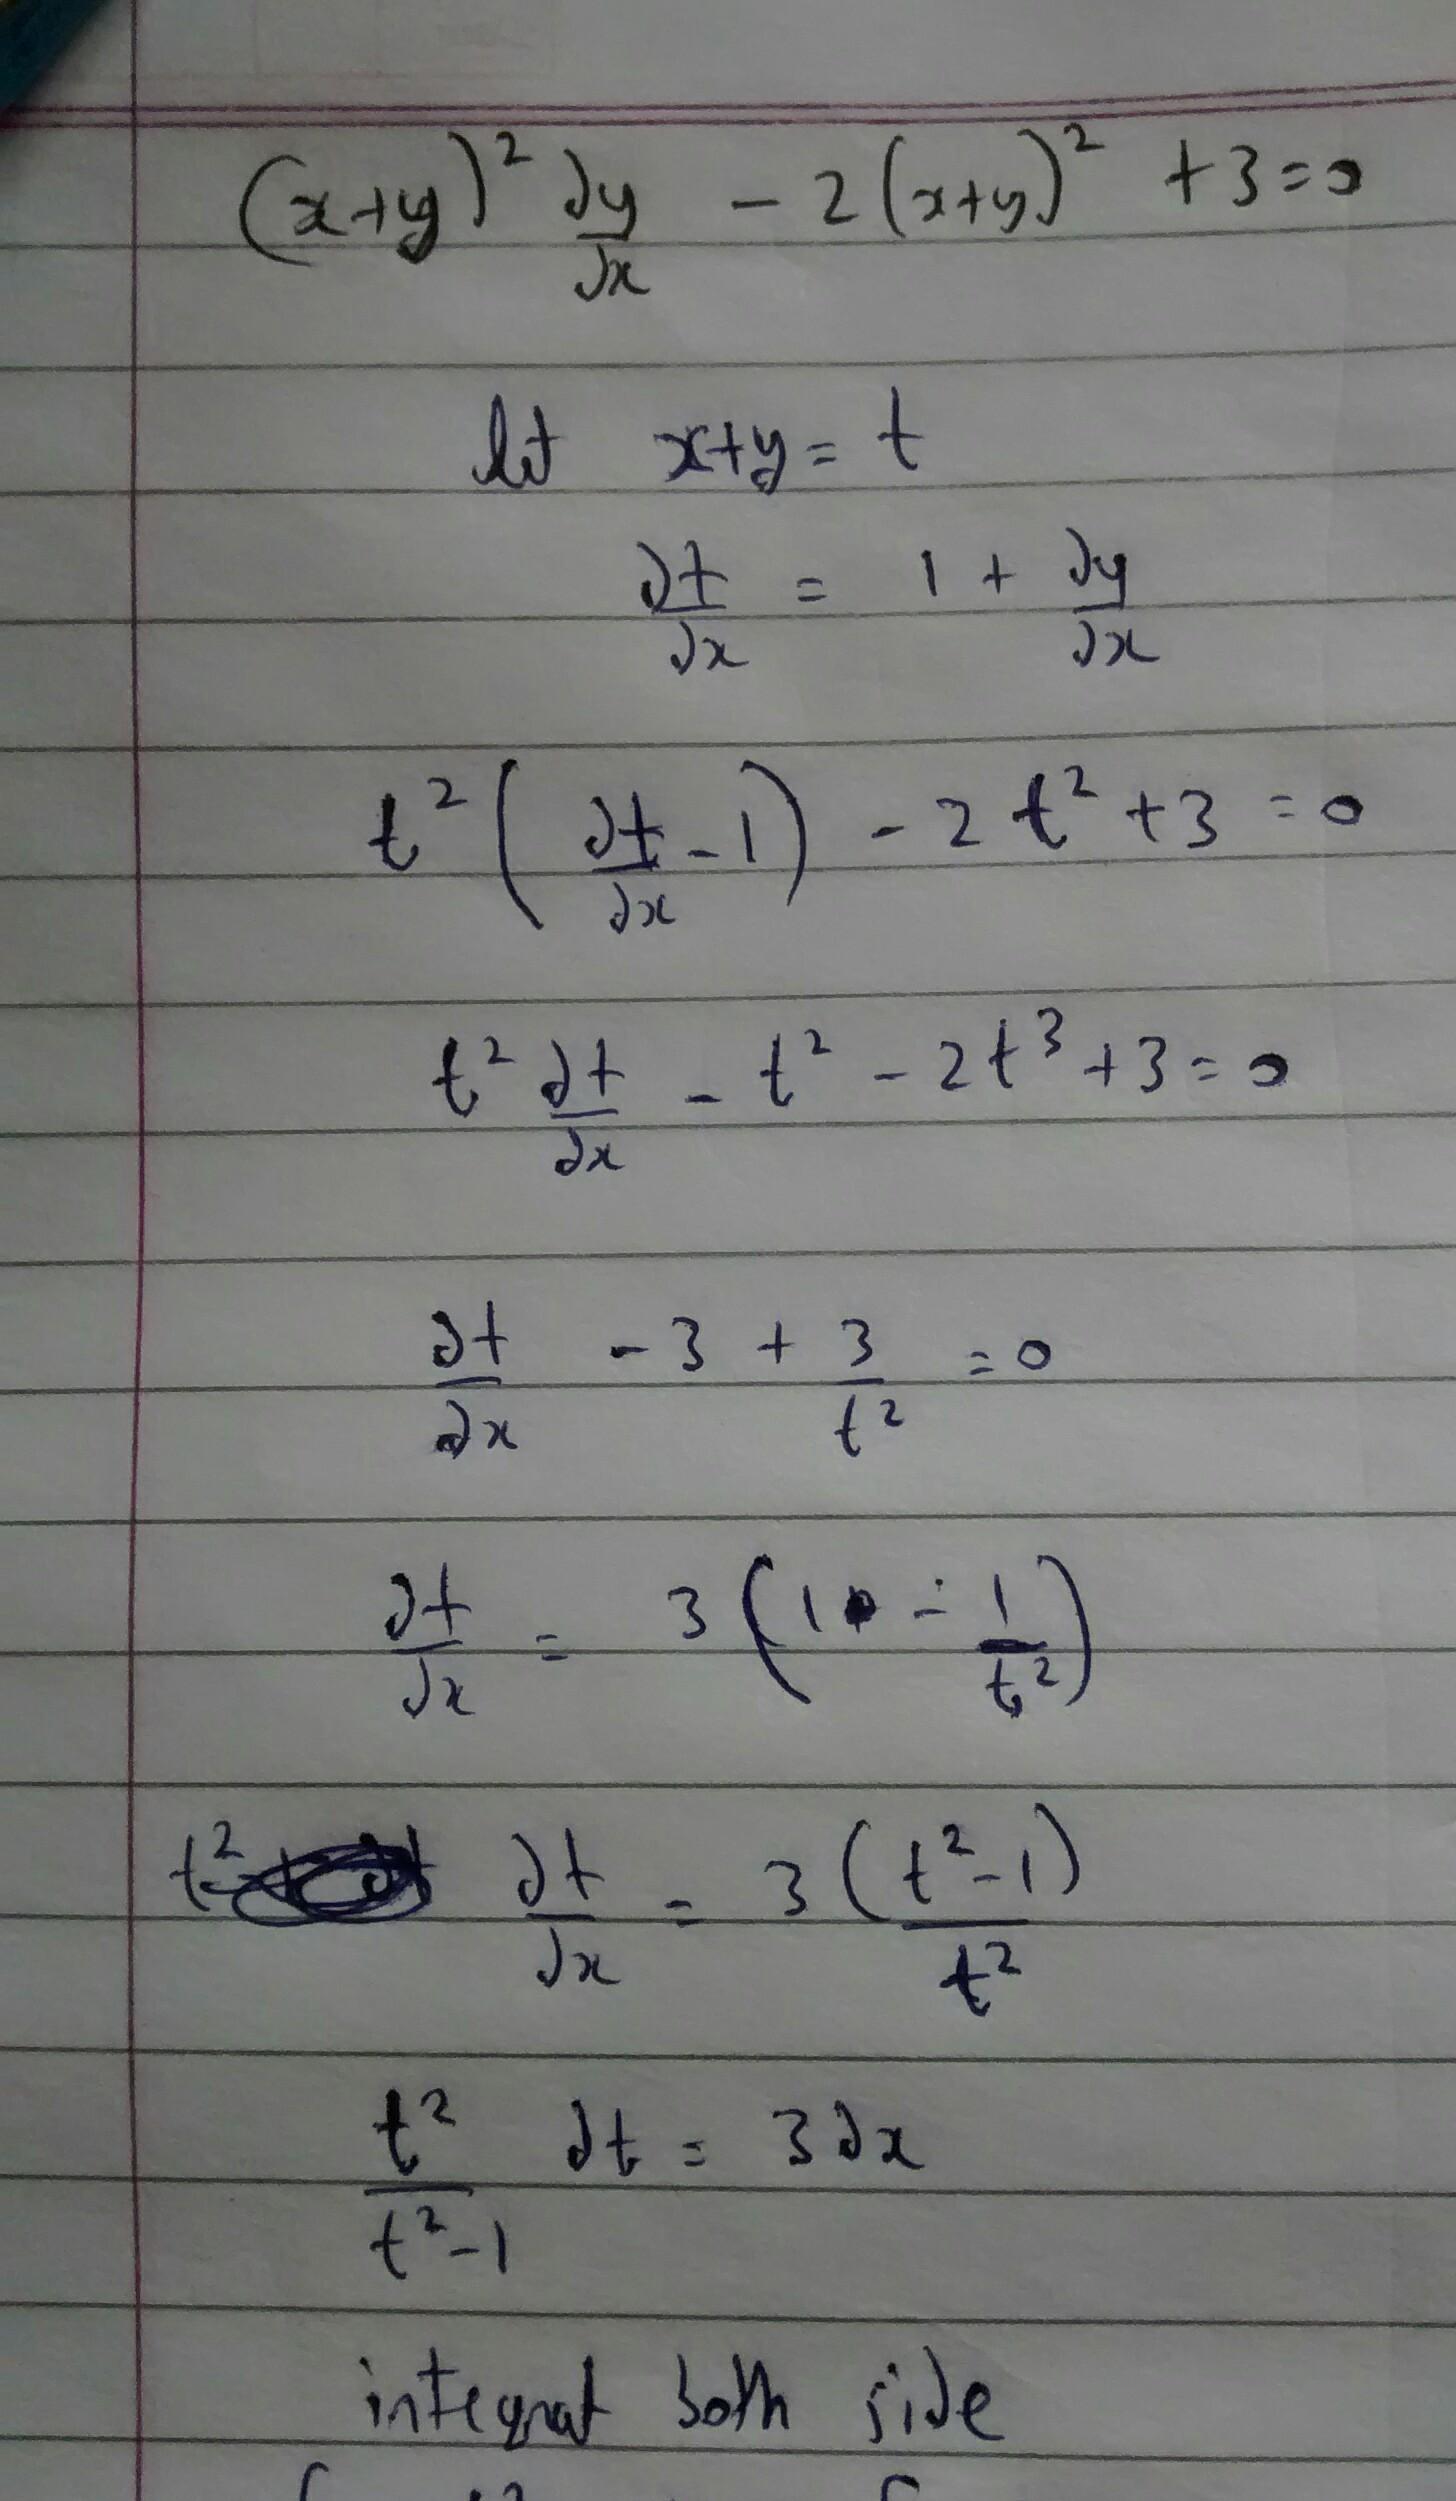 (x+y)² dy/dx - 2(x+y)² + 3 = 0
let x+y = t
dt/dx = 1 + dy/dx
t² (dt/dx - 1) - 2t² + 3 = 0
t² dt/dx - t² - 2t³ + 3 = 0
dt/dx - 3 + 3/t² = 0
dt/dx = 3 (1 - 1/t²)
t² dt/dx = 3 (t²-1)/t²
t²/t²-1 dt = 3dx
integrat both side